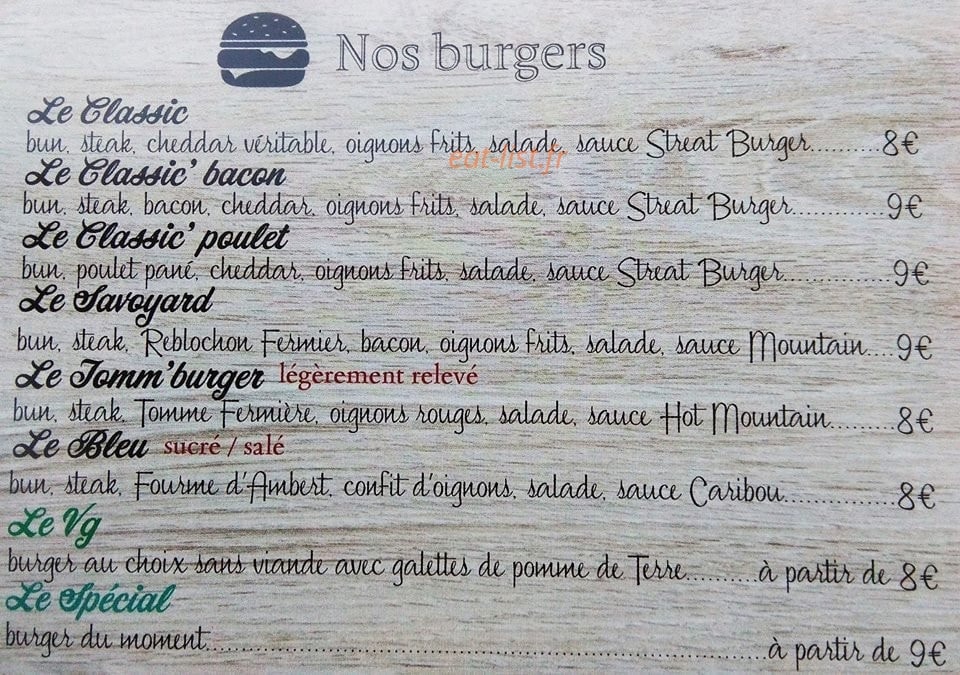 Nos burgers
Le Classic
bun, steak, cheddar véritable, oignons frits, salade, sauce Streat Burger..........8€
eat-list.fr
Le Classic' bacon
bun, steak, bacon, cheddar, oignons frits, salade, sauce Streat Burger..............9€
Le Classic' poulet
bun, poulet pané, cheddar, oignons frits, salade, sauce Streat Burger...............9€
Le Savoyard
bun, steak, Reblochon Fermier, bacon, oignons frits, salade, sauce Mountain....9€
Le Tomm'burger légèrement relevé
bun, steak, Tomme Fermière, oignons rouges, salade, sauce Hot Mountain.........8€
Le Bleu sucré / salé
bun, steak, Fourme d'Ambert, confit d'oignons, salade, sauce Caribou................8€
Le Vg
burger au choix sans viande avec galettes de pomme de Terre..........à partir de 8€
Le Spécial
burger du moment................................................................................à partir de 9€